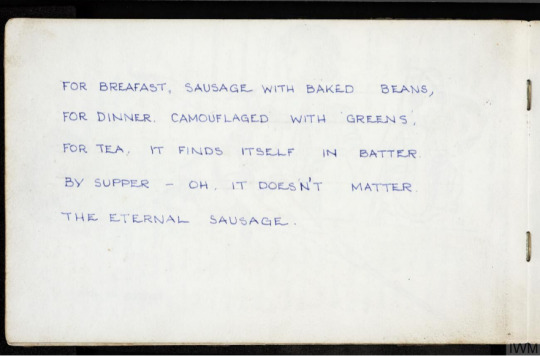 FOR BREAFAST, SAUSAGE WITH BAKED BEANS,
FOR DINNER. CAMOUFLAGED WITH 'GREENS',
FOR TEA, IT FINDS ITSELF IN BATTER.
BY SUPPER – OH, IT DOESN'T MATTER.
THE ETERNAL SAUSAGE.
IWM